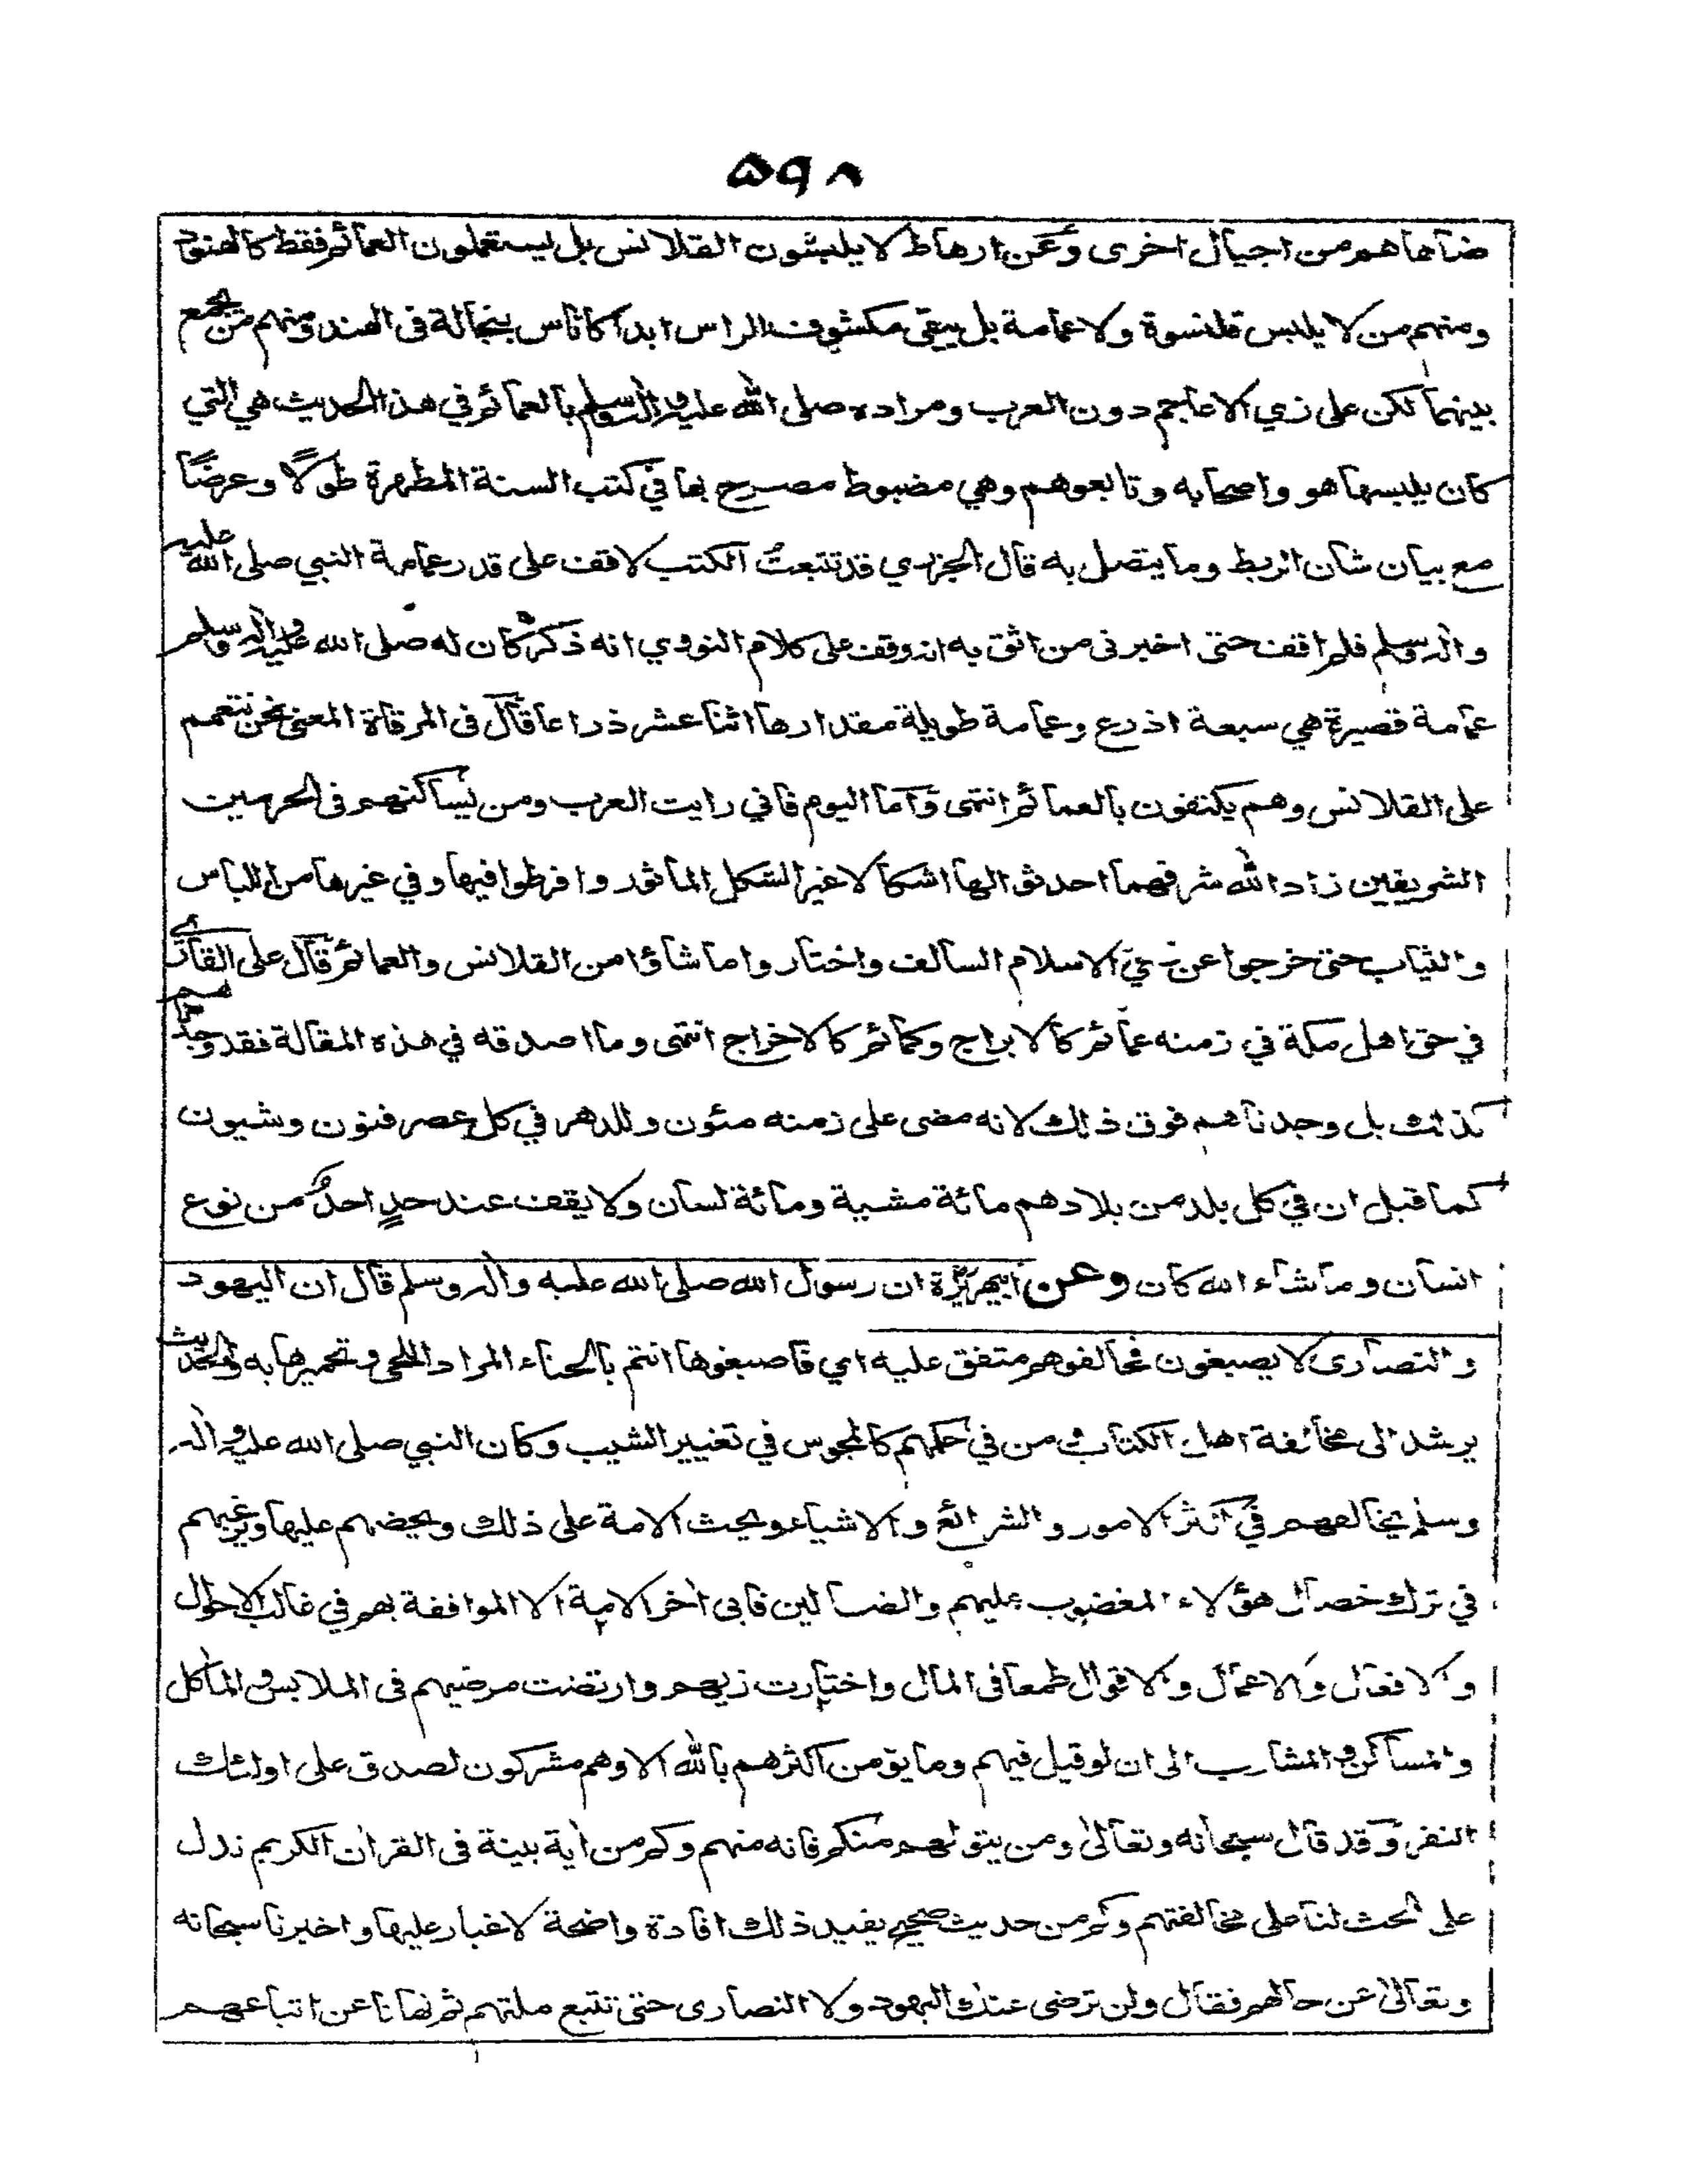 ۵۹۸
ضاهاهم من اجيال اخرى وعن ارهاط لا يلبسون القلانس بل يستعملون العمائم فقط كالهنود
ومنهم من لا يلبس قلنسوة ولا عمامة بل يبقى مكشوف الراس ابدا كاناس بنجالة فى الهند ومنهم من يجمع
بينهما لكن على زي الاعاجم دون العرب ومراده صلى الله عليه واله وسلم بالعمائم في هذا الحديث هي التي
كان يلبسها هو واصحابه وتابعوهم وهي مضبوط مصرح بها في كتب السنة المطهرة طولًا وعرضًا
مع بيان شان الربط وما يتصل به قال الجزري قد تتبعت الكتب لاقف على قدر عمامة النبي صلى الله عليه
واله وسلم فلم اقف حتى اخبرنى من اثق به انه وقف على كلام النووي انه ذكر كان له صلى الله عليه واله وسلم
عمامة قصيرة هي سبعة اذرع وعمامة طويلة مقدارها اثنا عشر ذراعا قال فى المرقاة المعنى نحن نتعمم
على القلانس وهم يكتفون بالعمائم انتهى واما اليوم فاني رايت العرب ومن يساكنهم فى الحرمين
الشريفين زاد الله شرفهما احدثوا لها اشكالا غير الشكل الماثور وافرطوا فيها وفي غيرها من اللباس
والثياب حتى خرجوا عن زي الاسلام السالف واختاروا ما شاؤا من القلانس والعمائم قال على القاري
في حق اهل مكة في زمنه عمائم كالابراج وكمائم كالاخراج انتهى وما اصدقه في هذه المقالة فقد وجدناهم
كذلك بل وجدناهم فوق ذلك لانه مضى على زمنه مئون وللدهر في كل عصر فنون وشيون
كما قيل ان في كل بلد من بلادهم مائة مشية ومائة لسان ولا يقف عند حدٍ احدٌ من نوع
انسان وما شاء الله كان وعن ابيهريرة ان رسول الله صلى الله عليه واله وسلم قال ان اليهود
والنصارى لا يصبغون فخالفوهم متفق عليه اي فاصبغوها انتم بالحناء المراد اللحى وتحميرها به والحديث
يرشد الى مخالفة اهل الكتاب ومن في حكمهم كالمجوس في تغيير الشيب وكان النبي صلى الله عليه واله
وسلم يخالفهم في اكثر الامور والشرائع والاشياء ويحث الامة على ذلك ويحضهم عليها ويرغبهم
في ترك خصال هؤلاء المغضوب عليهم والضالين فابى اخر الامة الا الموافقة بهم في غالب الاحوال
والافعال والاعمال والاقوال طمعا فى المال واختارت زيهم وارتضت مرضيهم فى الملابس والماكل
والمساكن والمشارب الى ان لو قيل فيهم وما يؤمن اكثرهم بالله الا وهم مشركون لصدق على اولئك
النفر وقد قال سبحانه وتعالى ومن يتولهم منكم فانه منهم وكم من اية بينة فى القران الكريم تدل
على الحث لنا على مخالفتهم وكم من حديث صحيح يفيد ذلك افادة واضحة لا غبار عليها واخبرنا سبحانه
وتعالى عن حالهم فقال ولن ترضى عنك اليهود ولا النصارى حتى تتبع ملتهم ثم نهانا عن اتباعهم